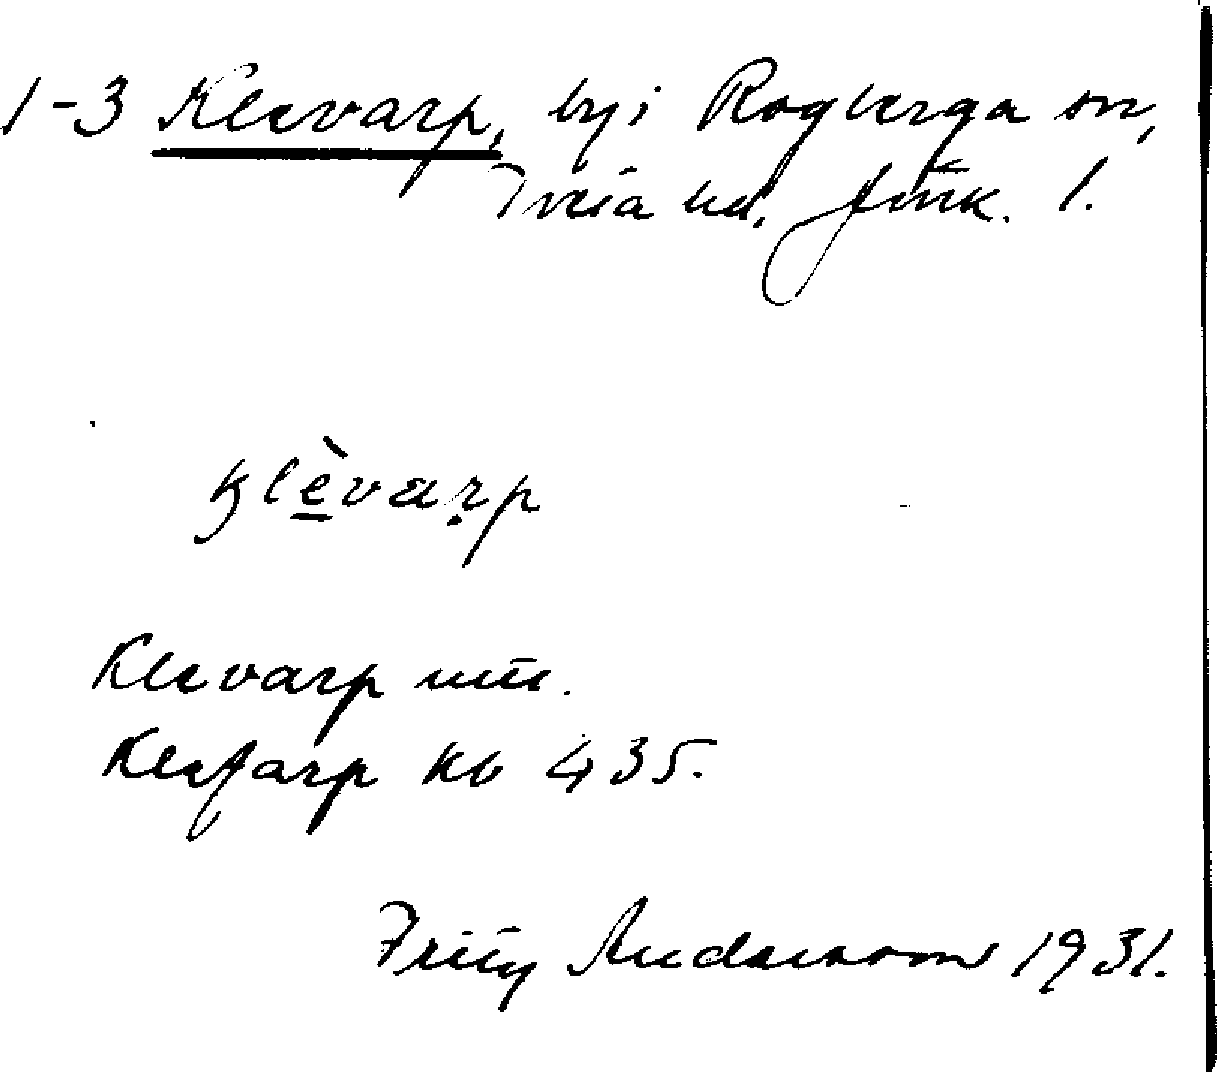 1-3 Klevarp, by i Rogberga sn,
Tveta hd. Jönk. l.
klèvarp
Klevarp uttr.
Klefarp kb 435.
Fritz Andersson 1931.